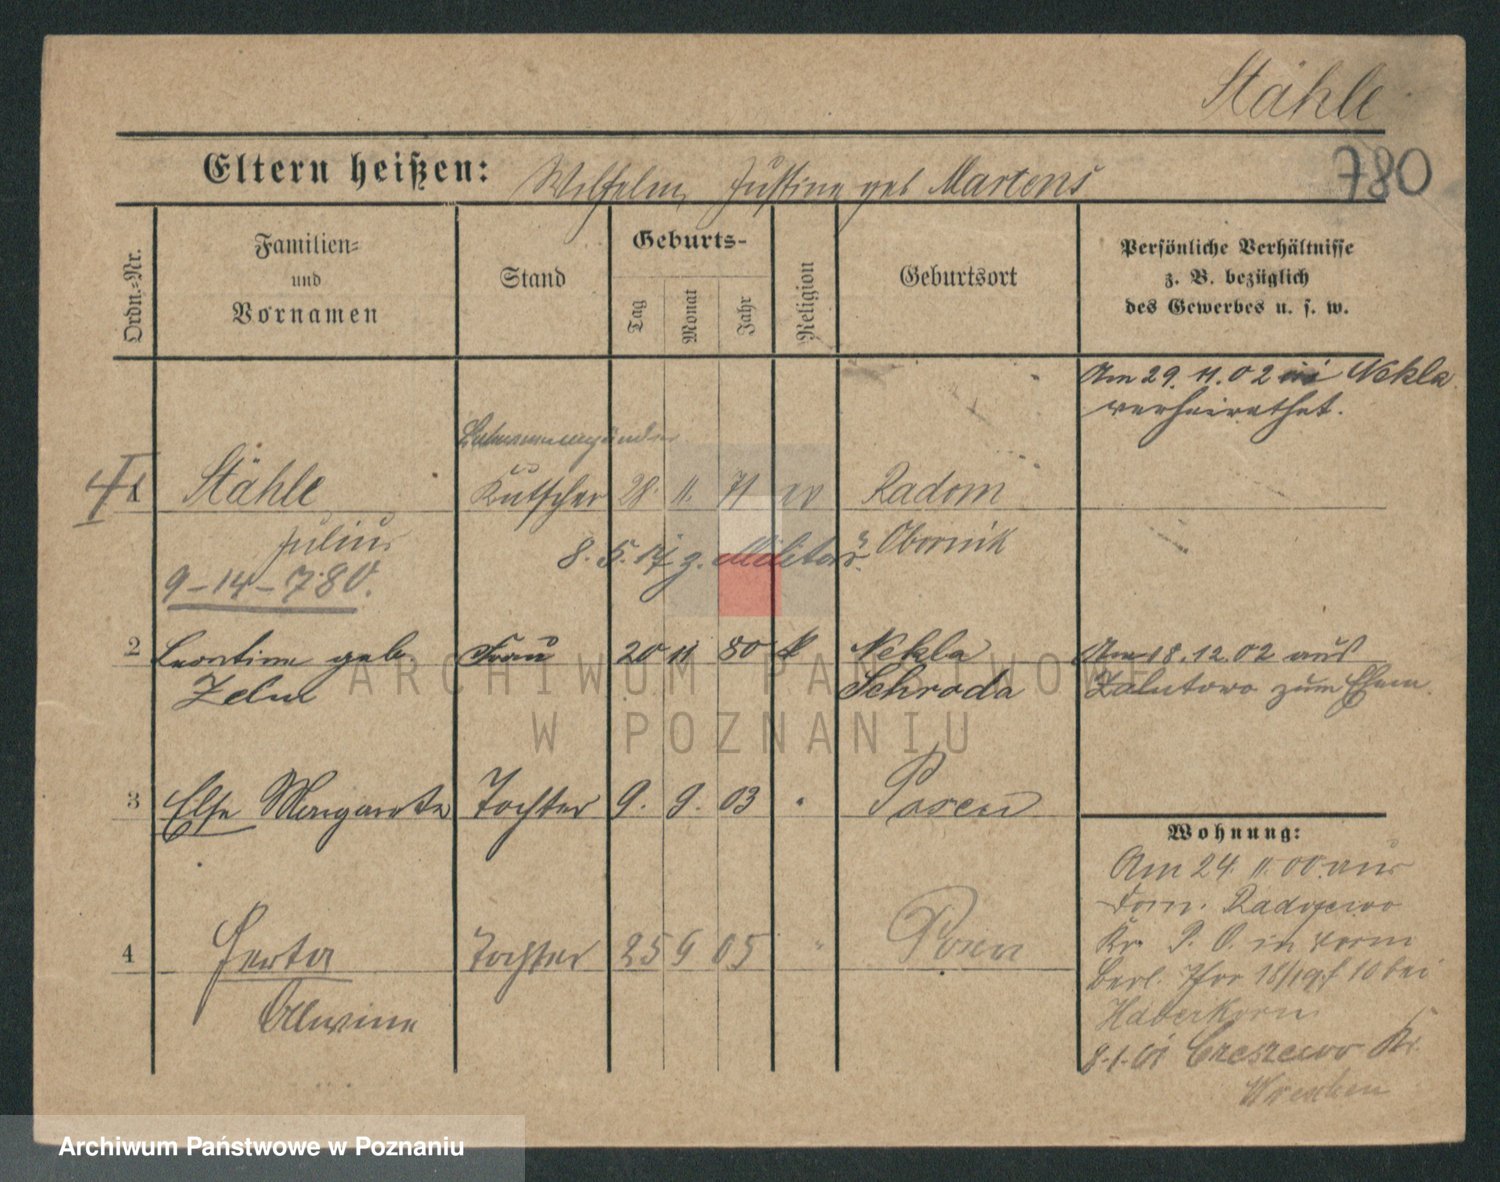 Stähle
780
Eltern heißen: Wilhelm, Justine geb Martens
Ordn.-Nr.
Familien-
und
Vornamen
Stand
Geburts-
Tag
Monat
Jahr
Religion
Geburtsort
Persönliche Verhältnisse
z. B. bezüglich
des Gewerbes u. s. w.
Am 29.11.02 in Nekla
verheirathet.
1 Stähle Kutscher 28. 11. 71 ev Radom
Julius Obornik
8.5.14 z. Militär
9-14-780.
2 Leontine geb Frau 20 11 80 k Nekla Am 18.12.02 aus
Zelm Schroda Zalutowo zum Ehem.
3 Else Margarete Tochter 9. 9. 03 Posen
Wohnung:
Am 24. 11. 00. aus
Dom. Radojewo
Kr. P. O. in
4 Herta Tochter 25 9 05 " Posen
Berl. Thor 18/19 b 10 bei
Alwine
Haberkorn
8.1.01 Czeszewo Kr.
Wreschen
ARCHIWUM PAŃSTWOWE
W POZNANIU
Archiwum Państwowe w Poznaniu